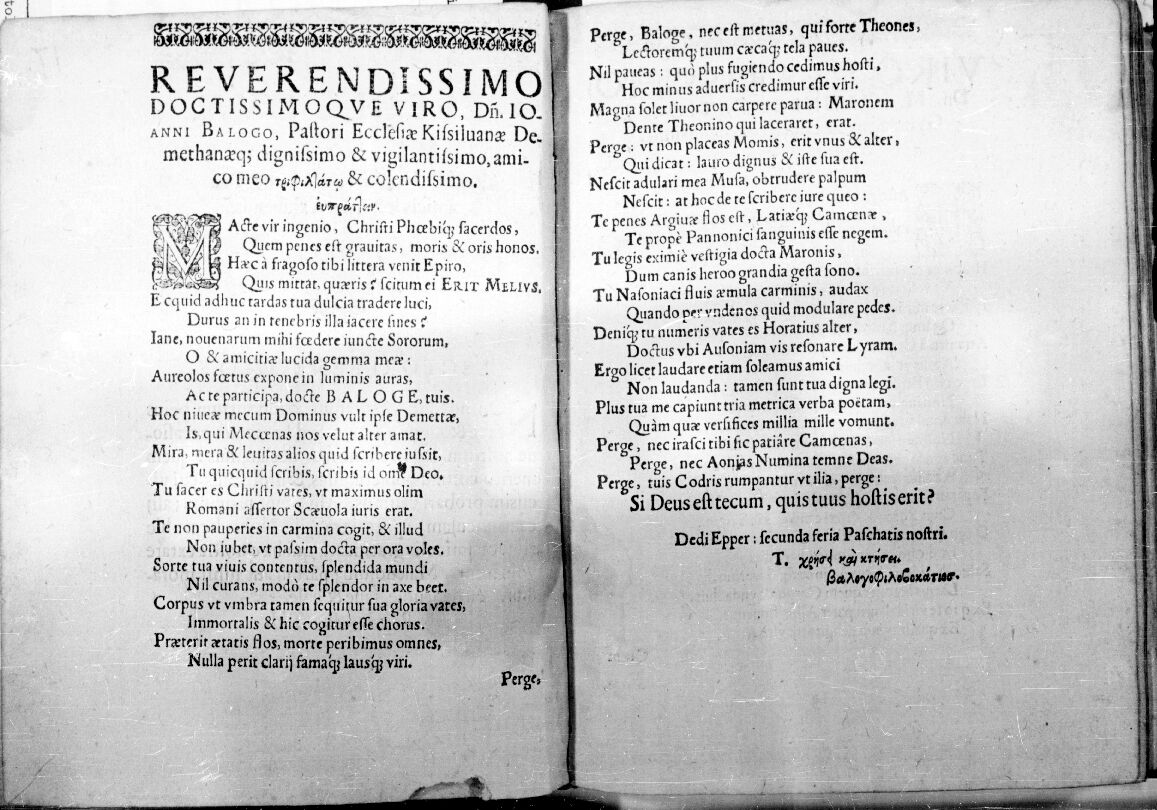 REVERENDISSIMO
DOCTISSIMOQVE VIRO, Dñ. IO-
ANNI BALOGO, Paſtori Eccleſiæ Kiſsiluanæ De-
methanæq́; digniſsimo & vigilantiſsimo, ami-
co meo τριφιλτάτῳ & colendiſsimo.
ἐυπράτlειν.
MActe vir ingenio, Chriſti Phœbiq́; ſacerdos,
Quem penes eſt grauitas, moris & oris honos.
Hæc à fragoſo tibi littera venit Epiro,
Quis mittat, quæris? ſcitum ei ERIT MELIVS.
Ecquid adhuc tardas tua dulcia tradere luci,
Durus an in tenebris illa iacere ſines?
Iane, nouenarum mihi fœdere iuncte Sororum,
O & amicitiæ lucida gemma meæ:
Aureolos fœtus expone in luminis auras,
Ac te participa, docte BALOGE, tuis.
Hoc niueæ mecum Dominus vult ipſe Demettæ,
Is, qui Mecœnas nos velut alter amat.
Mira, mera & leuitas alios quid ſcribere iuſsit,
Tu quicquid ſcribis, ſcribis id omē Deo.
Tu ſacer es Chriſti vates, vt maximus olim
Romani aſſertor Scæuola iuris erat.
Te non pauperies in carmina cogit, & illud
Non iubet, vt paſsim docta per ora voles.
Sorte tua viuis contentus, ſplendida mundi
Nil curans, modò te ſplendor in axe beet.
Corpus vt vmbra tamen ſequitur ſua gloria vates,
Immortalis & hic cogitur eſſe chorus.
Præterit ætatis flos, morte peribimus omnes,
Nulla perit clarij famaq́; lausq́; viri.
Perge,
Perge, Baloge, nec eſt metuas, qui forte Theones,
Lectoremq́; tuum cæcaq́; tela paues.
Nil paueas: quò plus fugiendo cedimus hoſti,
Hoc minus aduerſis credimur eſſe viri.
Magna ſolet liuor non carpere parua: Maronem
Dente Theonino qui laceraret, erat.
Perge: vt non placeas Momis, erit vnus & alter,
Qui dicat: lauro dignus & iſte ſua eſt.
Neſcit adulari mea Muſa, obtrudere palpum
Neſcit: at hoc de te ſcribere iure queo:
Te penes Argiuæ flos eſt, Latiæq́; Camœnæ,
Te propè Pannonici ſanguinis eſſe negem.
Tu legis eximiè veſtigia docta Maronis,
Dum canis heroo grandia geſta ſono.
Tu Naſoniaci fluis æmula carminis, audax
Quando per vndenos quid modulare pedes.
Deniq́; tu numeris vates es Horatius alter,
Doctus vbi Auſoniam vis reſonare Lyram.
Ergo licet laudare etiam ſoleamus amici
Non laudanda: tamen ſunt tua digna legi.
Plus tua me capiunt tria metrica verba poëtam,
Quàm quæ verſifices millia mille vomunt.
Perge, nec iraſci tibi ſic patiâre Camœnas,
Perge, nec Aonias Numina temne Deas.
Perge, tuis Codris rumpantur vt ilia, perge:
Si Deus eſt tecum, quis tuus hoſtis erit?
Dedi Epper: ſecunda feria Paſchatis noſtri.
T. χρήσει καὶ κτήσει.